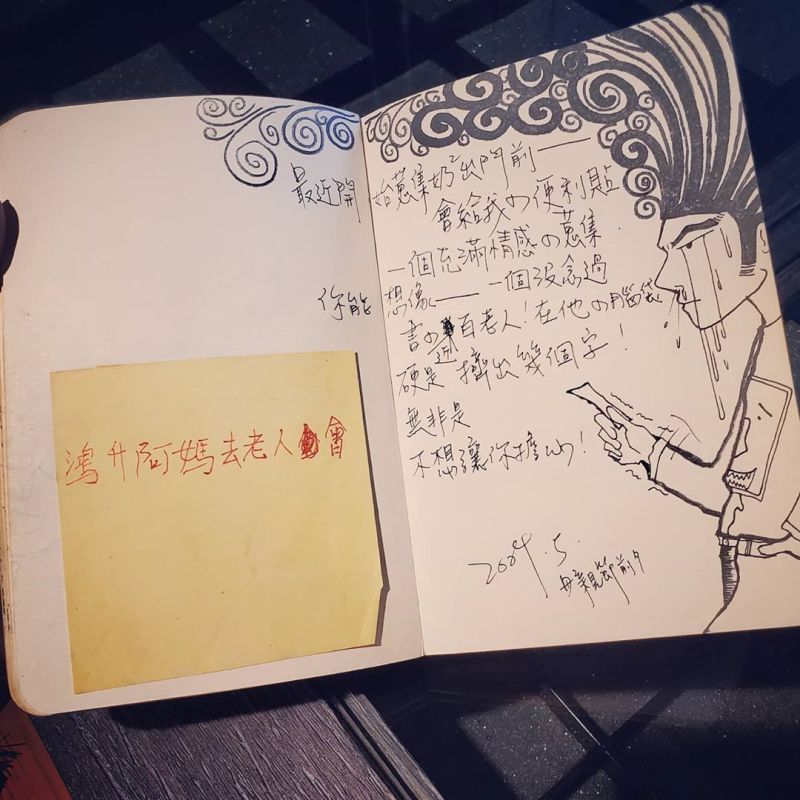 最近開始蒐集奶²出門前——
會給我の便利貼
一個充滿情感の蒐集.
你能想像——一個沒念過
書の近百老人!在他の腦袋
硬是擠出幾個字!
無非是
不想讓你擔心!
2024.5.
母親節前夕
鴻升阿媽去老人會